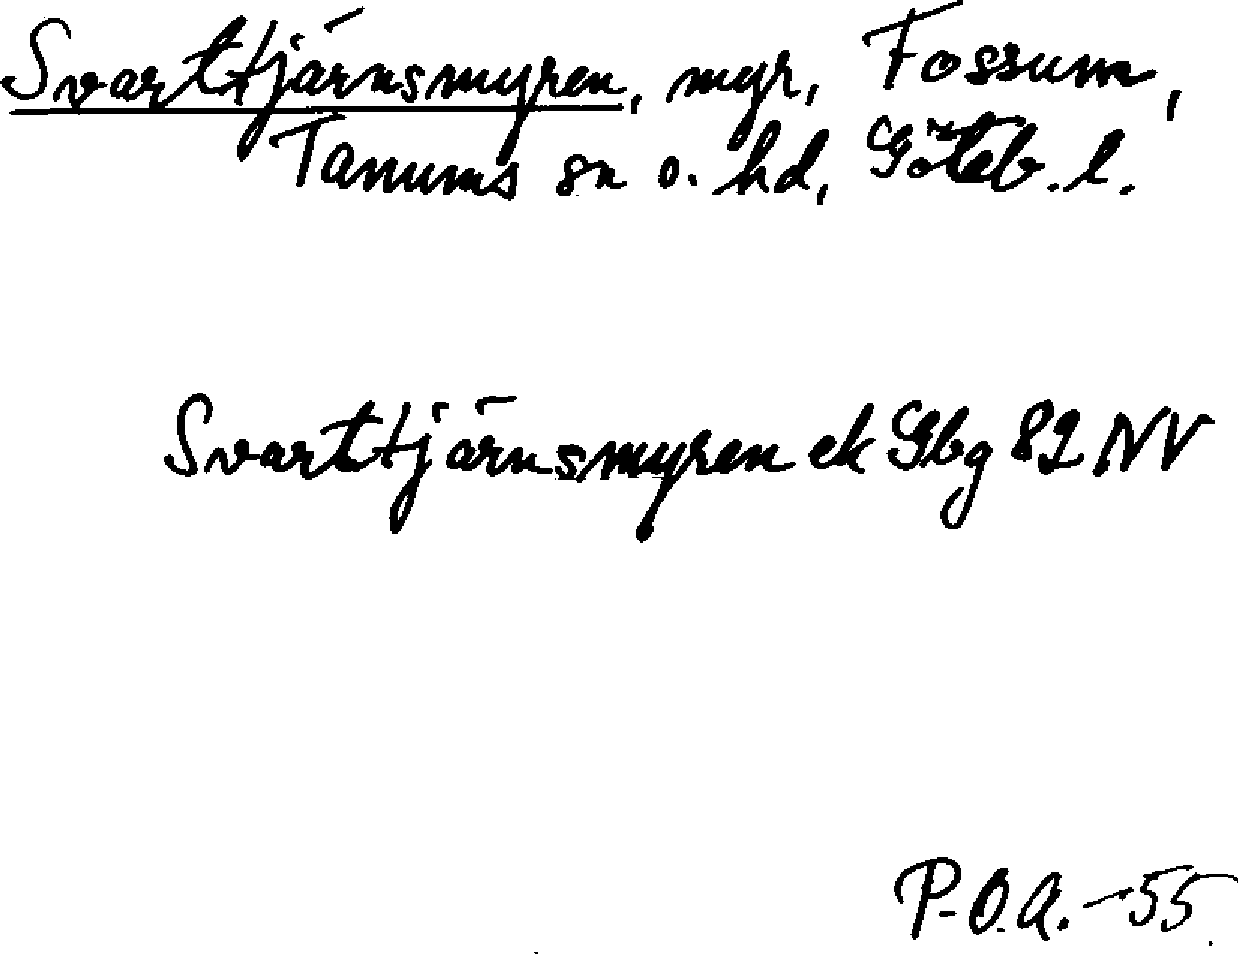 Svarttjärnsmyren, myr, Fossum,
Tanums sn o. hd, Göteb. l.
Svarttjärnsmyren ek Gbg 82 NV
P-O.A. -55.